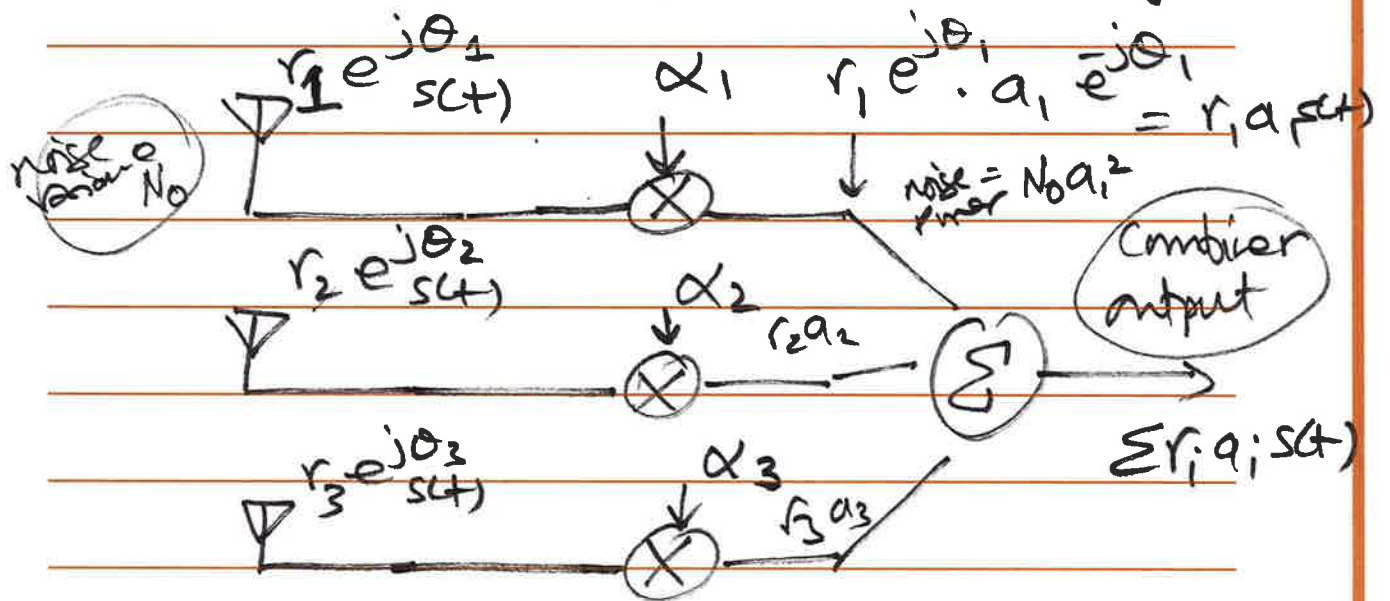 r₁ e^{jθ₁} s(t)
α₁
r₁ e^{jθ₁} · a₁ e^{-jθ₁}
= r₁ a₁ s(t)
noise variance N₀
noise power = N₀ a₁²
r₂ e^{jθ₂} s(t)
α₂
r₂ a₂
Σ
Combiner output
Σ rᵢ aᵢ s(t)
r₃ e^{jθ₃} s(t)
α₃
r₃ a₃